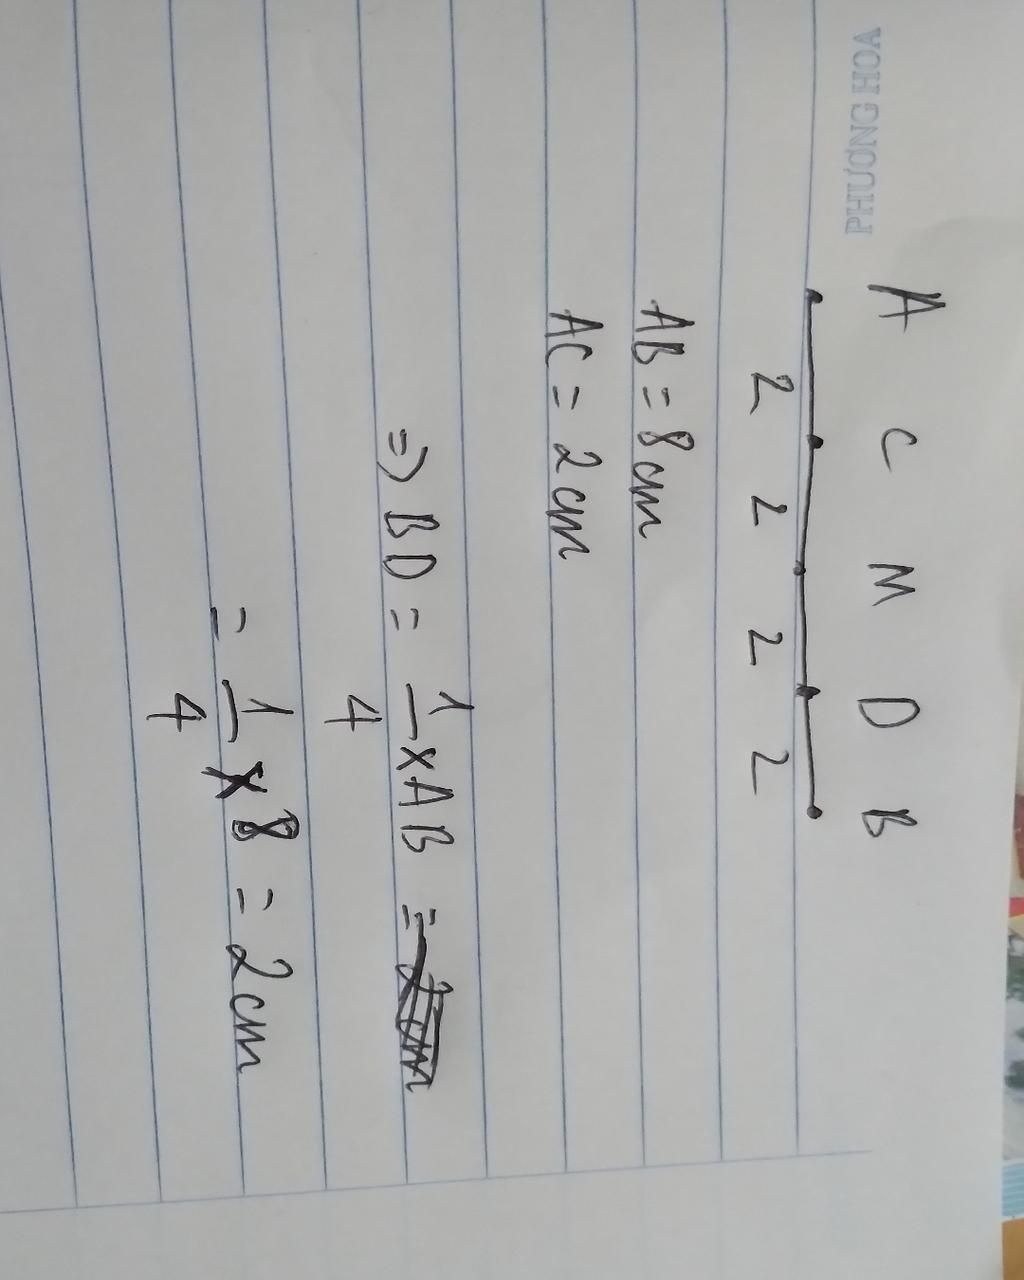 PHƯƠNG HOA
A C M D B
2 2 2 2
AB = 8cm
AC = 2cm
=> BD = 1/4 x AB =
= 1/4 x 8 = 2cm